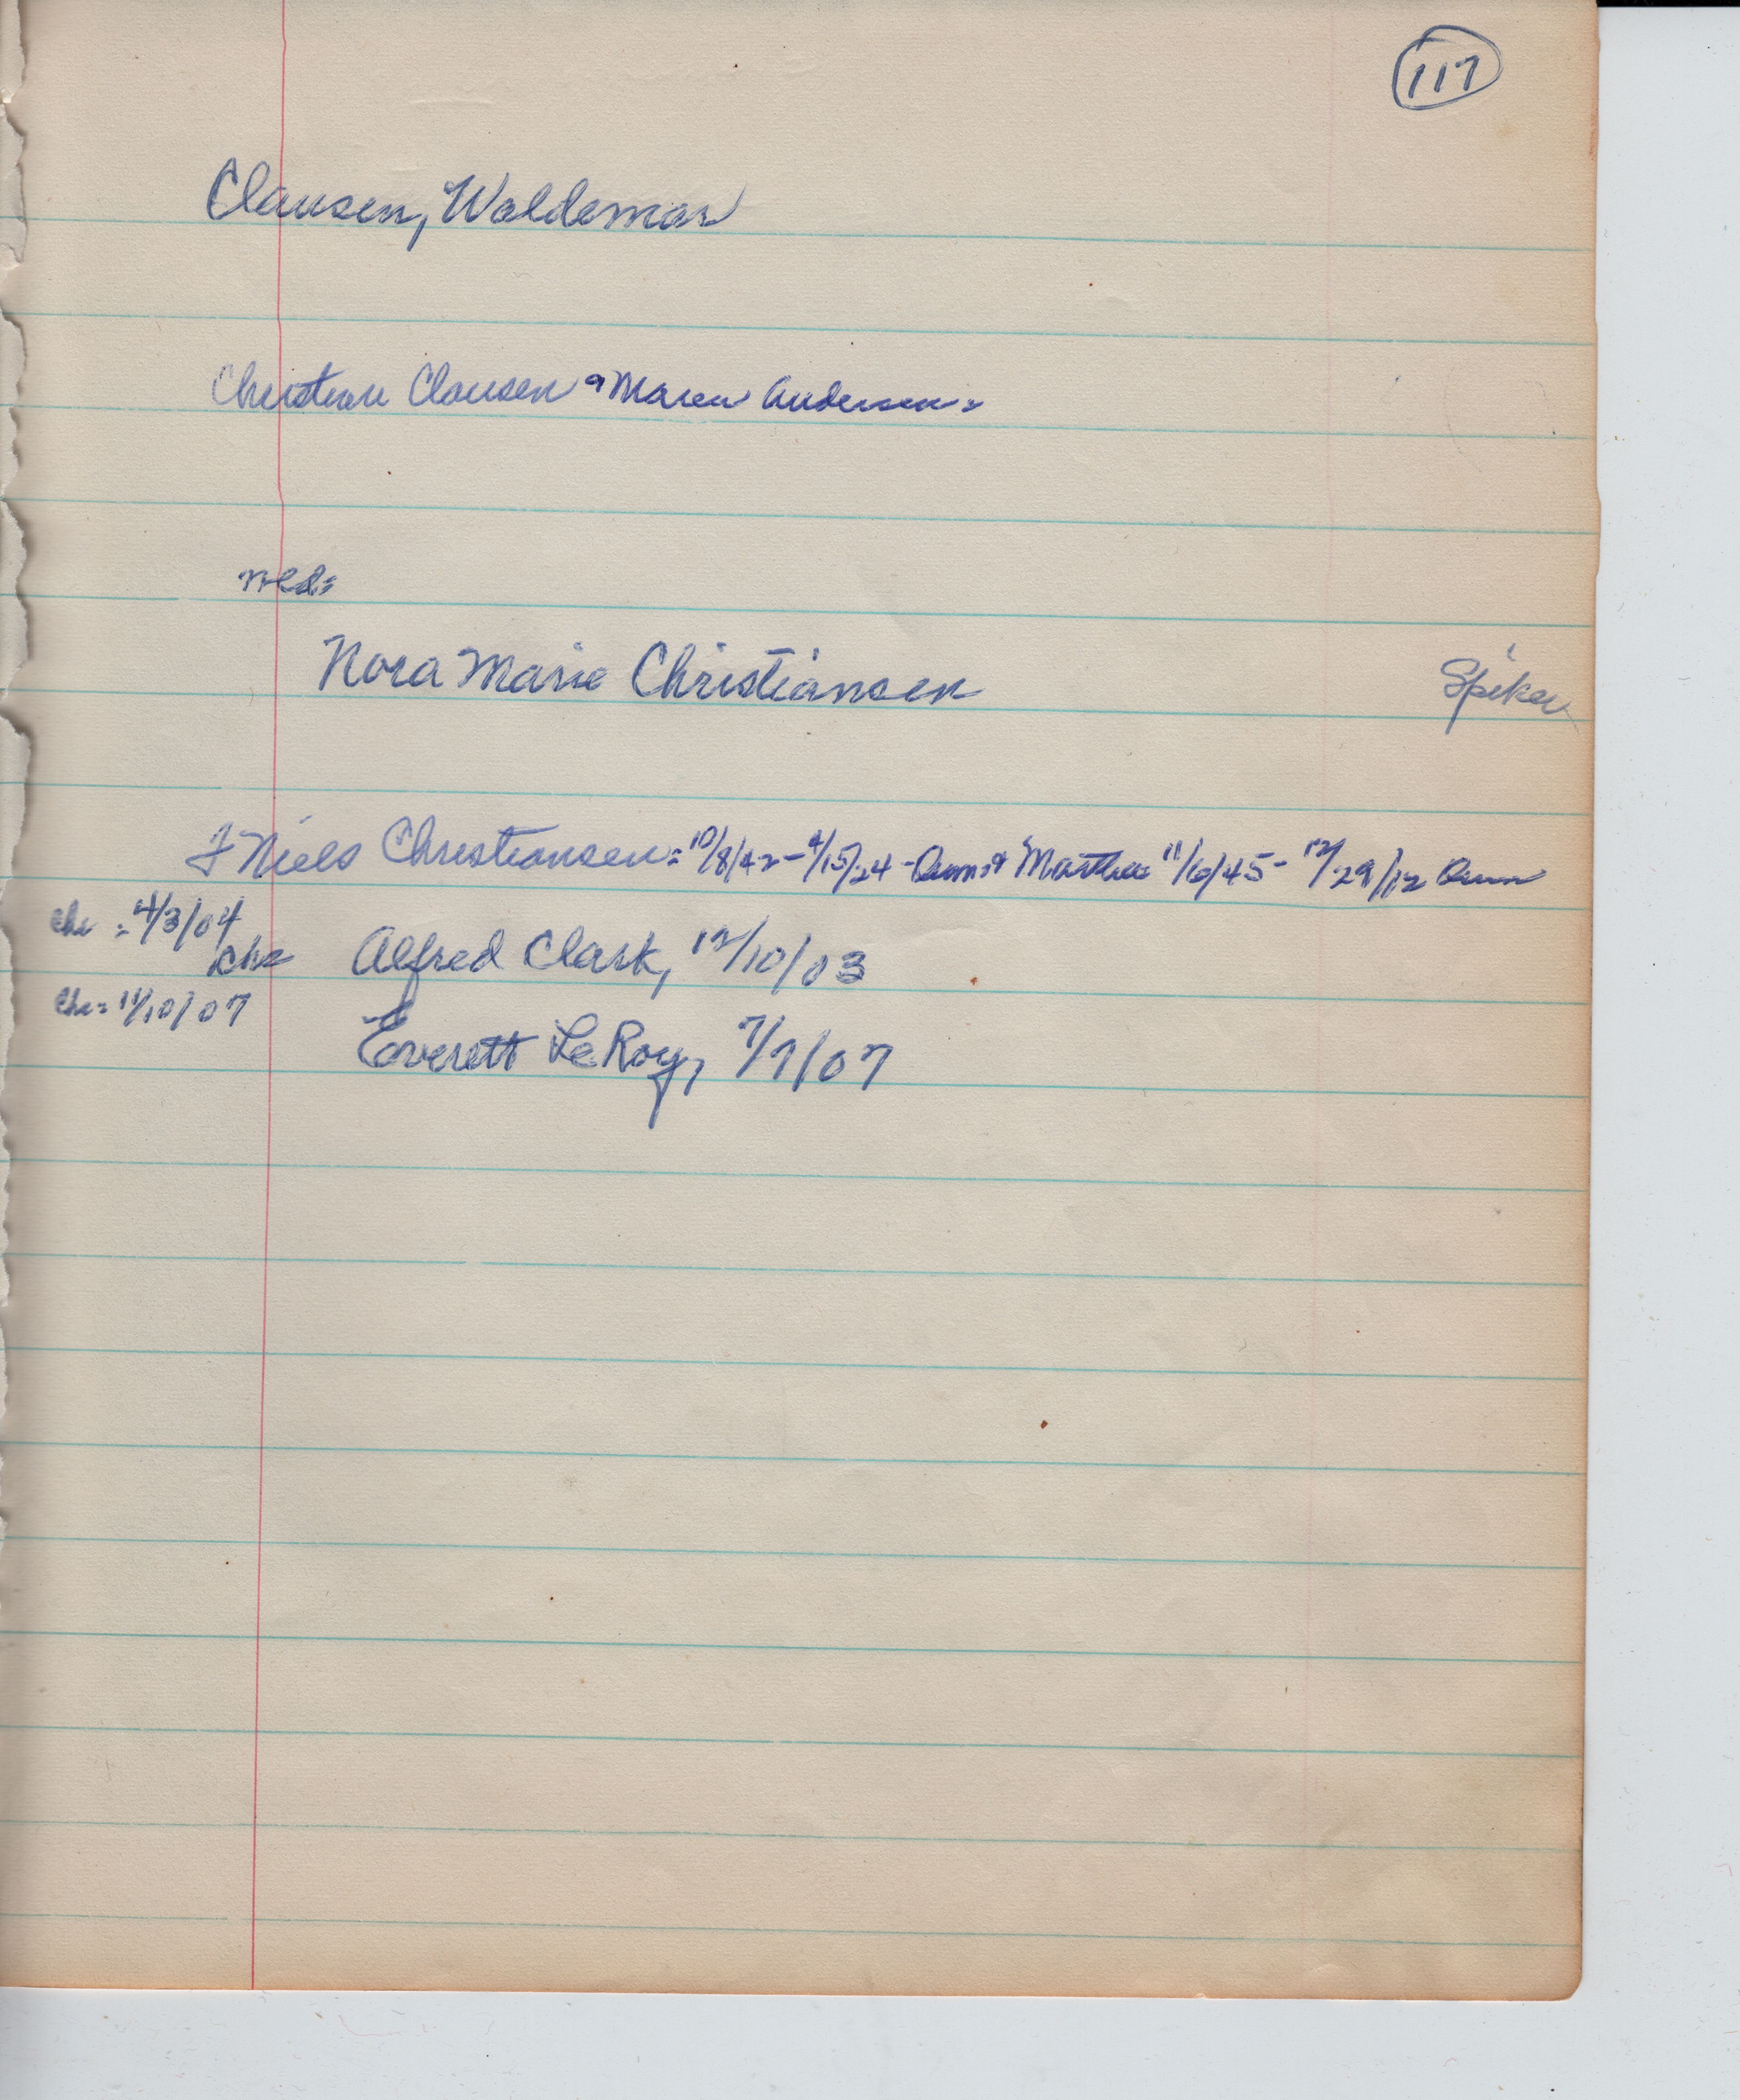 117
Clausen, Waldemar
Christian Clausen & Maren Andersen =
Wed=
Nora Marie Christiansen
Spiker
Niels Christiansen = 10/8/42 - 4/15/24 - & Marthea 11/6/45 - 12/29/12
Chr = 4/3/04
Chr Alfred Clark, 12/10/03
Chr = 11/10/07
Everett LeRoy, 7/7/07